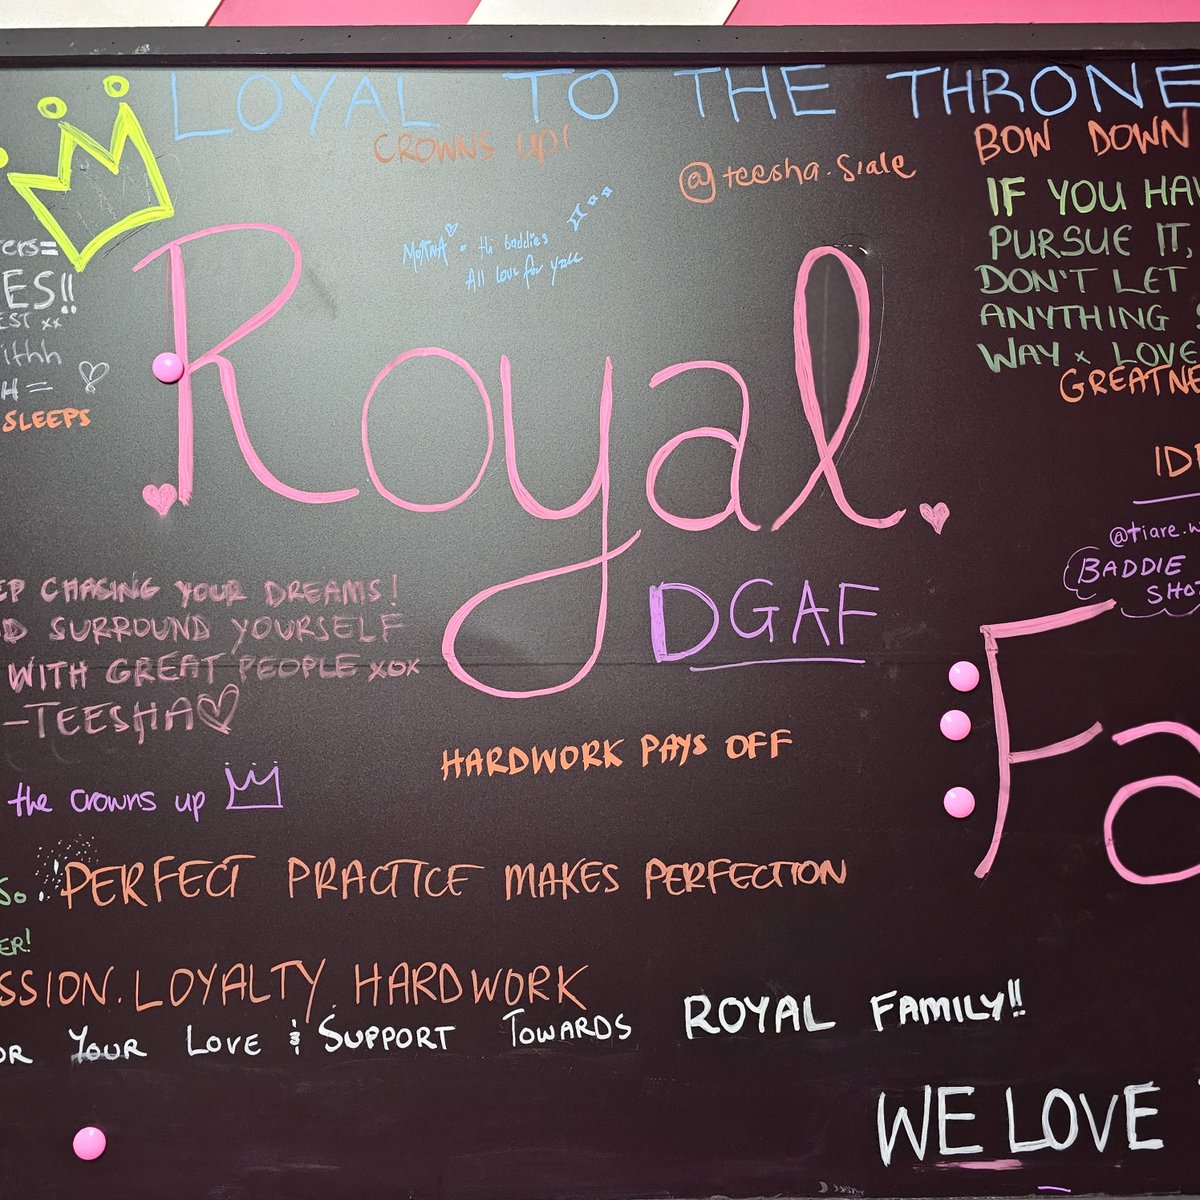 LOYAL TO THE THRONE
CROWNS UP!
@teesha.siale
BOW DOWN
IF YOU HAV
PURSUE IT,
DON'T LET
ANYTHING
WAY x LOVE
GREATNE
MOANA - Hi baddies
All love for yall
ers=
ES!!
EST xx
ithhh
H =
SLEEPS
Royal
ID
@tiare.w
BADDIE
SHOT
EP CHASING YOUR DREAMS!
D SURROUND YOURSELF
WITH GREAT PEOPLE xox
-TEESHA
DGAF
Fa
HARDWORK PAYS OFF
the crowns up
So
PERFECT PRACTICE MAKES PERFECTION
ER!
SSION. LOYALTY. HARDWORK
OR YOUR LOVE & SUPPORT TOWARDS ROYAL FAMILY!!
WE LOVE